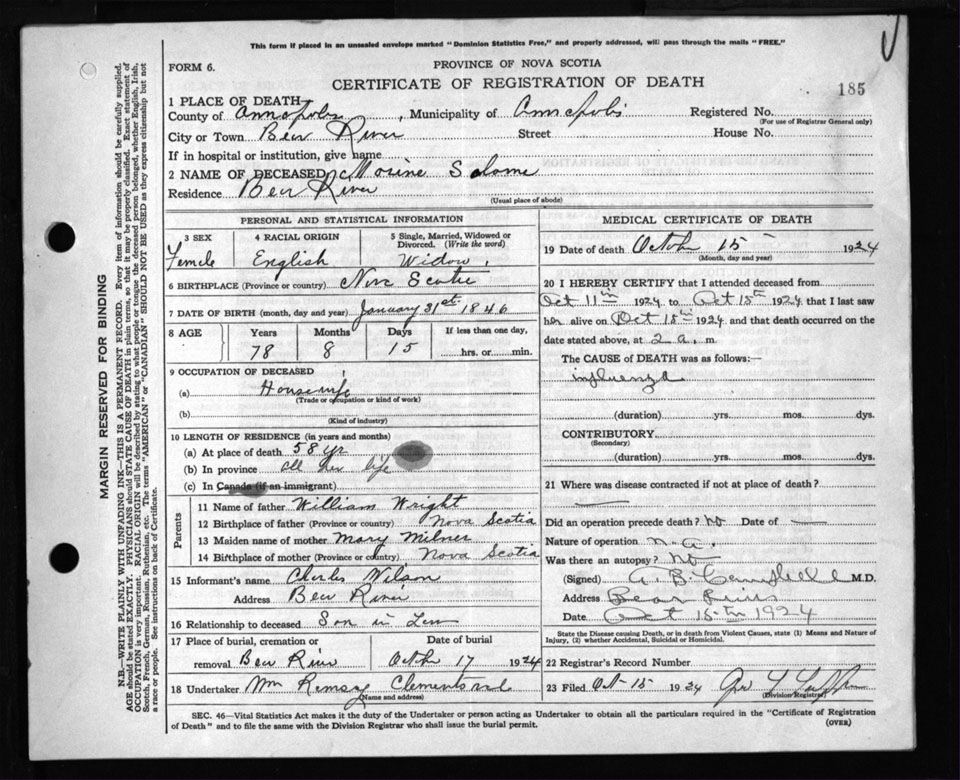 This form if placed in an unsealed envelope marked "Dominion Statistics Free," and properly addressed, will pass through the mails "FREE."
FORM 6.
PROVINCE OF NOVA SCOTIA
CERTIFICATE OF REGISTRATION OF DEATH
185
1 PLACE OF DEATH
County of Annapolis, Municipality of Annapolis Registered No.
(For use of Registrar General only)
City or Town Bear River Street House No.
If in hospital or institution, give name
2 NAME OF DECEASED Salome
Residence Bear River
(Usual place of abode)
PERSONAL AND STATISTICAL INFORMATION
3 SEX 4 RACIAL ORIGIN 5 Single, Married, Widowed or Divorced. (Write the word)
Female English Widow.
6 BIRTHPLACE (Province or country) Nova Scotia
7 DATE OF BIRTH (month, day and year) January 31st 1846
8 AGE Years Months Days If less than one day,
78 8 15 hrs. or min.
9 OCCUPATION OF DECEASED
(a) Housewife
(Trade or occupation or kind of work)
(b)
(Kind of industry)
10 LENGTH OF RESIDENCE (in years and months)
(a) At place of death 58 yr
(b) In province all her life
(c) In Canada (if an immigrant)
Parents
11 Name of father William Wright
12 Birthplace of father (Province or country) Nova Scotia
13 Maiden name of mother Mary Milner
14 Birthplace of mother (Province or country) Nova Scotia
15 Informant's name Charles Wilson
Address Bear River
16 Relationship to deceased Son in Law
17 Place of burial, cremation or removal Bear River
Date of burial
Octbr 17 1924
18 Undertaker Wm Ramsay Clementsvale
(Name and address)
MEDICAL CERTIFICATE OF DEATH
19 Date of death October 15 1924
(Month, day and year)
20 I HEREBY CERTIFY that I attended deceased from
Oct 11th 1924 to Oct 15th 1924 that I last saw
her alive on Oct 15th 1924 and that death occurred on the
date stated above, at 2 a. m
The CAUSE OF DEATH was as follows:
influenza
(duration) yrs. mos. dys.
CONTRIBUTORY
(Secondary)
(duration) yrs. mos. dys.
21 Where was disease contracted if not at place of death?
Did an operation precede death? No Date of
Nature of operation n.a.
Was there an autopsy? No
(Signed) A. B. Campbell M.D.
Address Bear River
Date Oct 15th 1924
State the Disease causing Death, or in death from Violent Causes, state (1) Means and Nature of
Injury, (2) whether Accidental, Suicidal or Homicidal.
22 Registrar's Record Number
23 Filed Oct 15 1924
(Division Registrar)
SEC. 46—Vital Statistics Act makes it the duty of the Undertaker or person acting as Undertaker to obtain all the particulars required in the "Certificate of Registration
of Death" and to file the same with the Division Registrar who shall issue the burial permit.
(OVER)
MARGIN RESERVED FOR BINDING
N.B.—WRITE PLAINLY WITH UNFADING INK—THIS IS A PERMANENT RECORD. Every item of information should be carefully supplied.
AGE should be stated EXACTLY. PHYSICIANS should STATE CAUSE OF DEATH in plain terms, so that it may be properly classified. Exact statement of
OCCUPATION is very important. RACIAL ORIGIN will be described by stating to what people or tongue the deceased person belonged, whether English, Irish,
Scotch, French, German, Russian, Ruthenian, etc. The terms "AMERICAN" or "CANADIAN" SHOULD NOT BE USED as they express citizenship but not
a race or people. See instructions on back of Certificate.